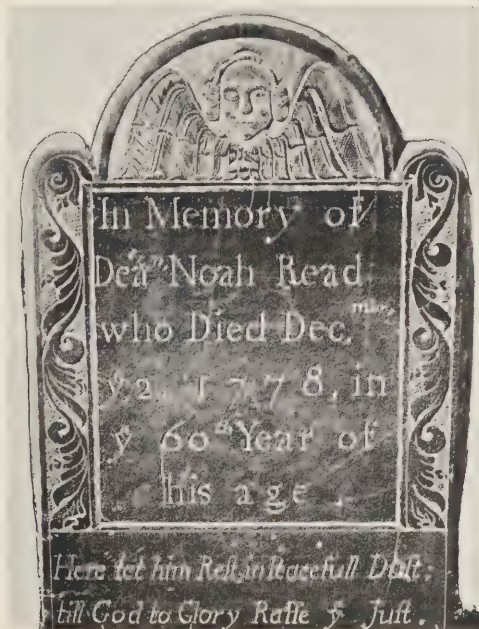 In Memory of
Deaⁿ Noah Read
who Died Dec.ᵐᵇᵉʳ
yͤ 2, 1778, in
yͤ 60ᵗʰ Year of
his age.
Here let him Reſt, in Peacefull Duſt;
till God to Glory Raiſe yͤ Juſt.